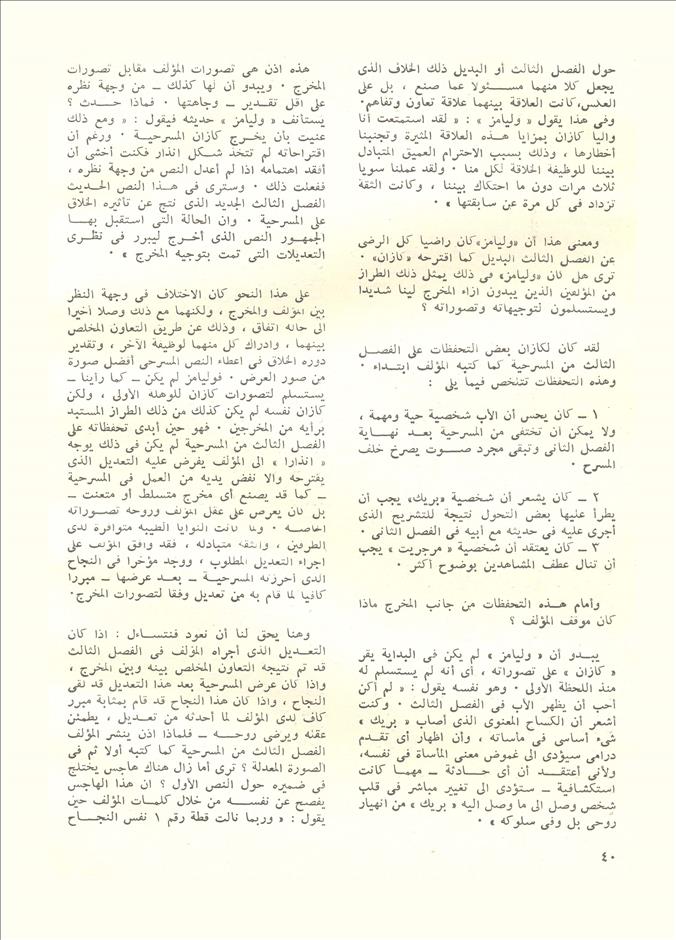 حول الفصل الثالث أو البديل ذلك الخلاف الذى
يجعل كلا منهما مسئولا عما صنع ، بل على
العكس،كانت العلاقة بينهما علاقة تعاون وتفاهم.
وفى هذا يقول « وليامز » : « لقد استمتعت أنا
واليا كازان بمزايا هذه العلاقة المثيرة وتجنبنا
أخطارها ، وذلك بسبب الاحترام العميق المتبادل
بيننا للوظيفة الخلاقة لكل منا · ولقد عملنا سويا
ثلاث مرات دون ما احتكاك بيننا ، وكانت الثقة
تزداد فى كل مرة عن سابقتها » ·
ومعنى هذا أن «وليامز»كان راضيا كل الرضى
عن الفصل الثالث البديل كما اقترحه «كازان» ·
ترى هل كان «وليامز» فى ذلك يمثل ذلك الطراز
من المؤلفين الذين يبدون ازاء المخرج لينا شديدا
ويستسلمون لتوجيهاته وتصوراته ؟
لقد كان لكازان بعض التحفظات على الفصل
الثالث من المسرحية كما كتبه المؤلف ابتداء ·
وهذه التحفظات تتلخص فيما يلى :
١ – كان يحس أن الأب شخصية حية ومهمة ،
ولا يمكن أن تختفى من المسرحية بعد نهاية
الفصل الثانى وتبقى مجرد صوت يصرخ خلف
المسرح ·
٢ – كان يشعر أن شخصية «بريك» يجب أن
يطرأ عليها بعض التحول نتيجة للتشريح الذى
أجرى عليه فى حديثه مع أبيه فى الفصل الثانى ·
٣ – كان يعتقد أن شخصية « مرجريت » يجب
أن تنال عطف المشاهدين بوضوح أكثر ·
وأمام هذه التحفظات من جانب المخرج ماذا
كان موقف المؤلف ؟
يبدو أن « وليامز » لم يكن فى البداية يقر
« كازان » على تصوراته ، أى أنه لم يستسلم له
منذ اللحظة الأولى · وهو نفسه يقول : « لم أكن
أحب أن يظهر الأب فى الفصل الثالث · وكنت
أشعر أن الكساح المعنوى الذى أصاب « بريك »
شىء أساسى فى مأساته ، وأن اظهار أى تقدم
درامى سيؤدى الى غموض معنى المأساة فى نفسه،
ولأنى أعتقد أن أى حادثة – مهما كانت
استكشافية – ستؤدى الى تغيير مباشر فى قلب
شخص وصل الى ما وصل اليه « بريك » من انهيار
روحى بل وفى سلوكه » ·
هذه اذن هى تصورات المؤلف مقابل تصورات
المخرج · ويبدو أن لها كذلك – من وجهة نظره
على أقل تقدير – وجاهتها · فماذا حدث ؟
يستأنف « وليامز » حديثه فيقول : « ومع ذلك
عنيت بأن يخرج كازان المسرحية · ورغم أن
اقتراحاته لم تتخذ شكل انذار فكنت أخشى أن
أفقد اهتمامه اذا لم أعدل النص من وجهة نظره ،
ففعلت ذلك · وسترى فى هذا النص الحديث
الفصل الثالث الجديد الذى نتج عن تأثيره الخلاق
على المسرحية · وان الحالة التى استقبل بها
الجمهور النص الذى أخرج ليبرر فى نظرى
التعديلات التى تمت بتوجيه المخرج » ·
على هذا النحو كان الاختلاف فى وجهة النظر
بين المؤلف والمخرج ، ولكنهما مع ذلك وصلا أخيرا
الى حالة اتفاق ، وذلك عن طريق التعاون المخلص
بينهما ، وادراك كل منهما لوظيفة الآخر ، وتقدير
دوره الخلاق فى اعطاء النص المسرحى أفضل صورة
من صور العرض · فوليامز لم يكن – كما رأينا –
يستسلم لتصورات كازان للوهلة الأولى ، ولكن
كازان نفسه لم يكن كذلك من ذلك الطراز المستبد
برأيه من المخرجين · فهو حين أبدى تحفظاته على
الفصل الثالث من المسرحية لم يكن فى ذلك يوجه
« انذارا » الى المؤلف يفرض عليه التعديل الذى
يقترحه والا نفض يديه من العمل فى المسرحية
– كما قد يصنع أى مخرج متسلط أو متعنت –
بل كان يعرض على عقل المؤلف وروحه تصوراته
الخاصة · ولما كانت النوايا الطيبة متوافرة لدى
الطرفين ، والثقة متبادلة ، فقد وافق المؤلف على
اجراء التعديل المطلوب ، ووجد مؤخرا فى النجاح
الذى أحرزته المسرحية – بعد عرضها – مبررا
كافيا لما قام به من تعديل وفقا لتصورات المخرج.
وهنا يحق لنا أن نعود فنتساءل : اذا كان
التعديل الذى أجراه المؤلف فى الفصل الثالث
قد تم نتيجة التعاون المخلص بينه وبين المخرج ،
واذا كان عرض المسرحية بعد هذا التعديل قد لقى
النجاح ، واذا كان هذا النجاح قد قام بمثابة مبرر
كاف لدى المؤلف لما أحدثه من تعديل ، يطمئن
عقله ويرضى روحه – فلماذا اذن ينشر المؤلف
الفصل الثالث من المسرحية كما كتبه أولا ثم فى
الصورة المعدلة ؟ ترى أما زال هناك هاجس يختلج
فى ضميره حول النص الأول ؟ ان هذا الهاجس
يفصح عن نفسه من خلال كلمات المؤلف حين
يقول : « وربما نالت قطة رقم ١ نفس النجاح
٤٠